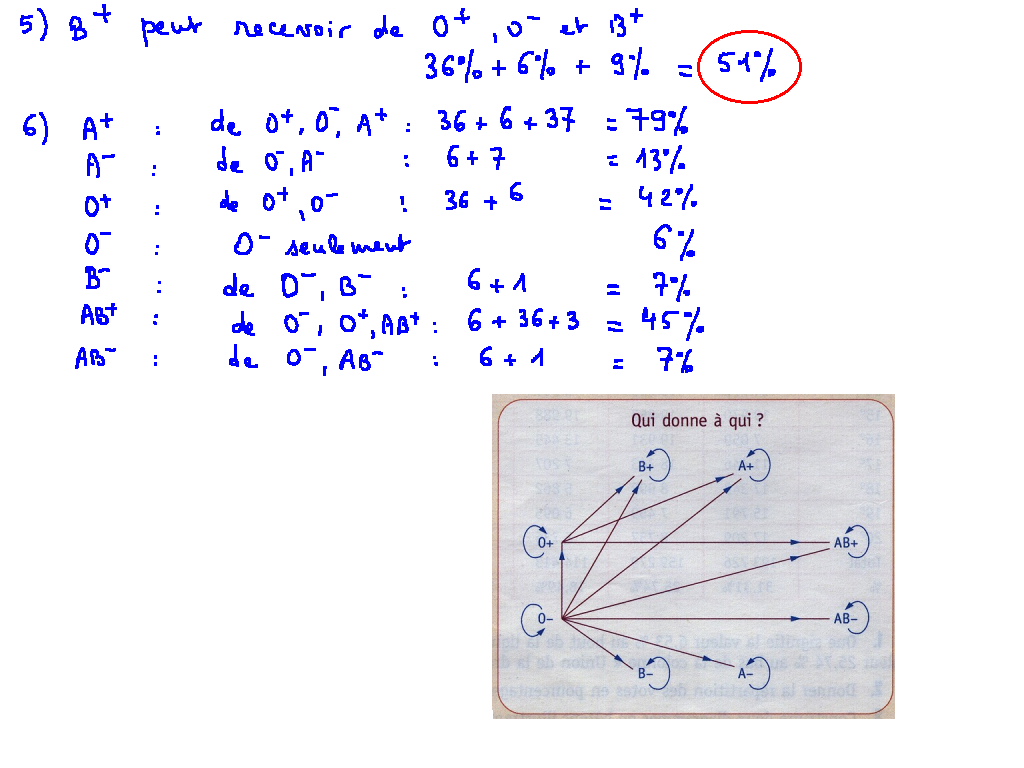 5) B+ peut recevoir de O+, O- et B+
36% + 6% + 9% = 51%
6) A+ : de O+, O-, A+ : 36 + 6 + 37 = 79%
A- : de O-, A- : 6 + 7 = 13%
O+ : de O+, O- : 36 + 6 = 42%
O- : O- seulement 6%
B- : de O-, B- : 6 + 1 = 7%
AB+ : de O-, O+, AB+ : 6 + 36 + 3 = 45%
AB- : de O-, AB- : 6 + 1 = 7%
Qui donne à qui ?
B+ A+
O+ AB+
O- AB-
B- A-